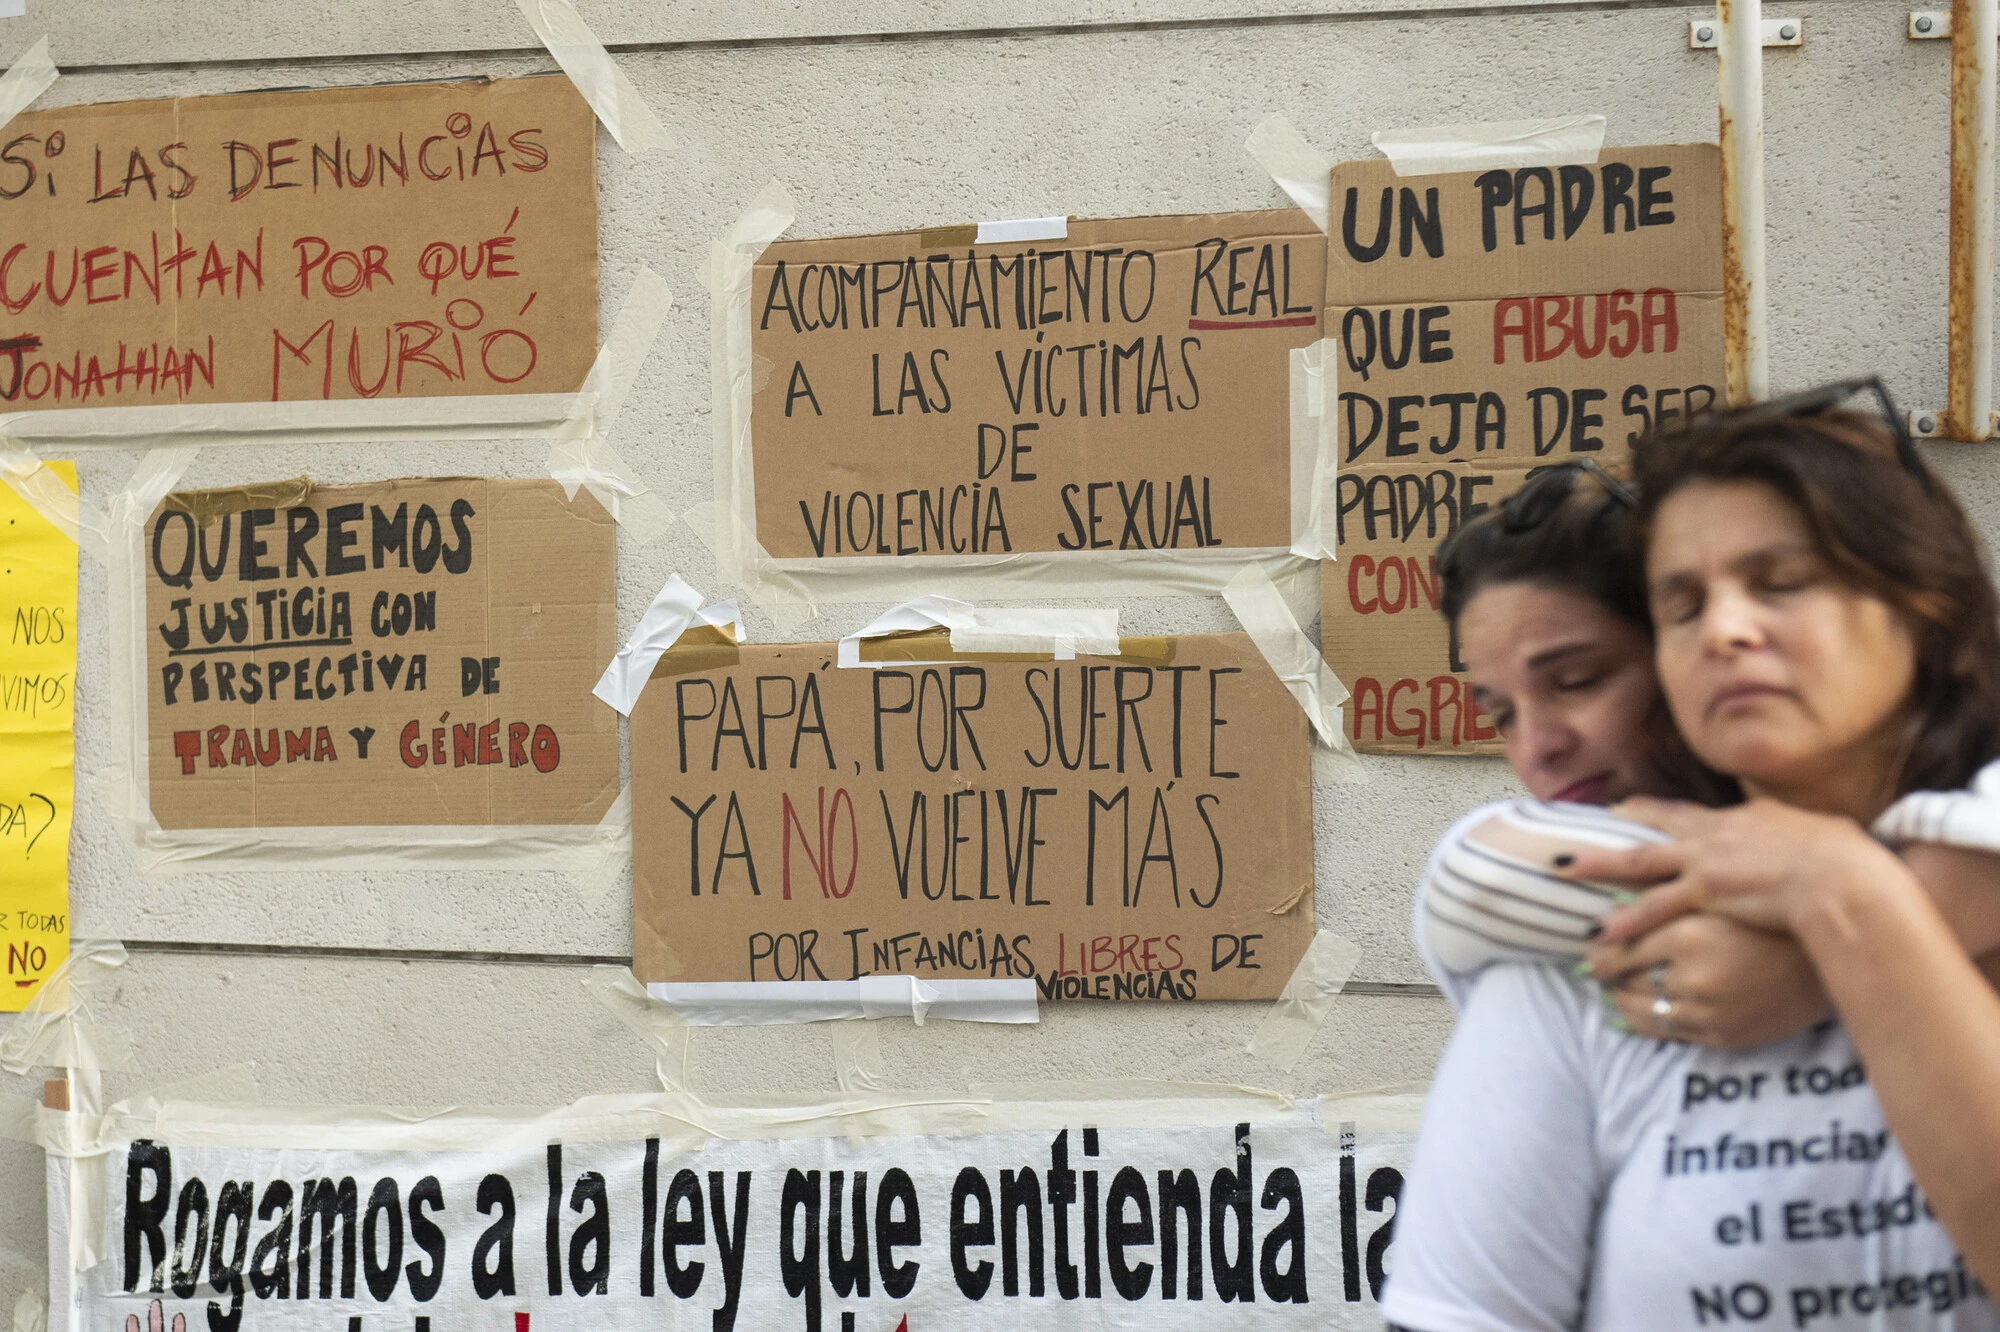 Si LAS DENUNCIAS
CUENTAN POR QUÉ
JONATHAN MURIÓ
ACOMPAÑAMIENTO REAL
A LAS VÍCTIMAS
DE
VIOLENCIA SEXUAL
UN PADRE
QUE ABUSA
DEJA DE SER
PADRE
CON
AGRE
NOS
VIMOS
DA?
R TODAS
NO
QUEREMOS
JUSTICIA CON
PERSPECTIVA DE
TRAUMA Y GÉNERO
PAPÁ, POR SUERTE
YA NO VUELVE MÁS
POR INFANCIAS LIBRES DE
VIOLENCIAS
Rogamos a la ley que entienda la
por tod
infancia
el Estado
NO protegi